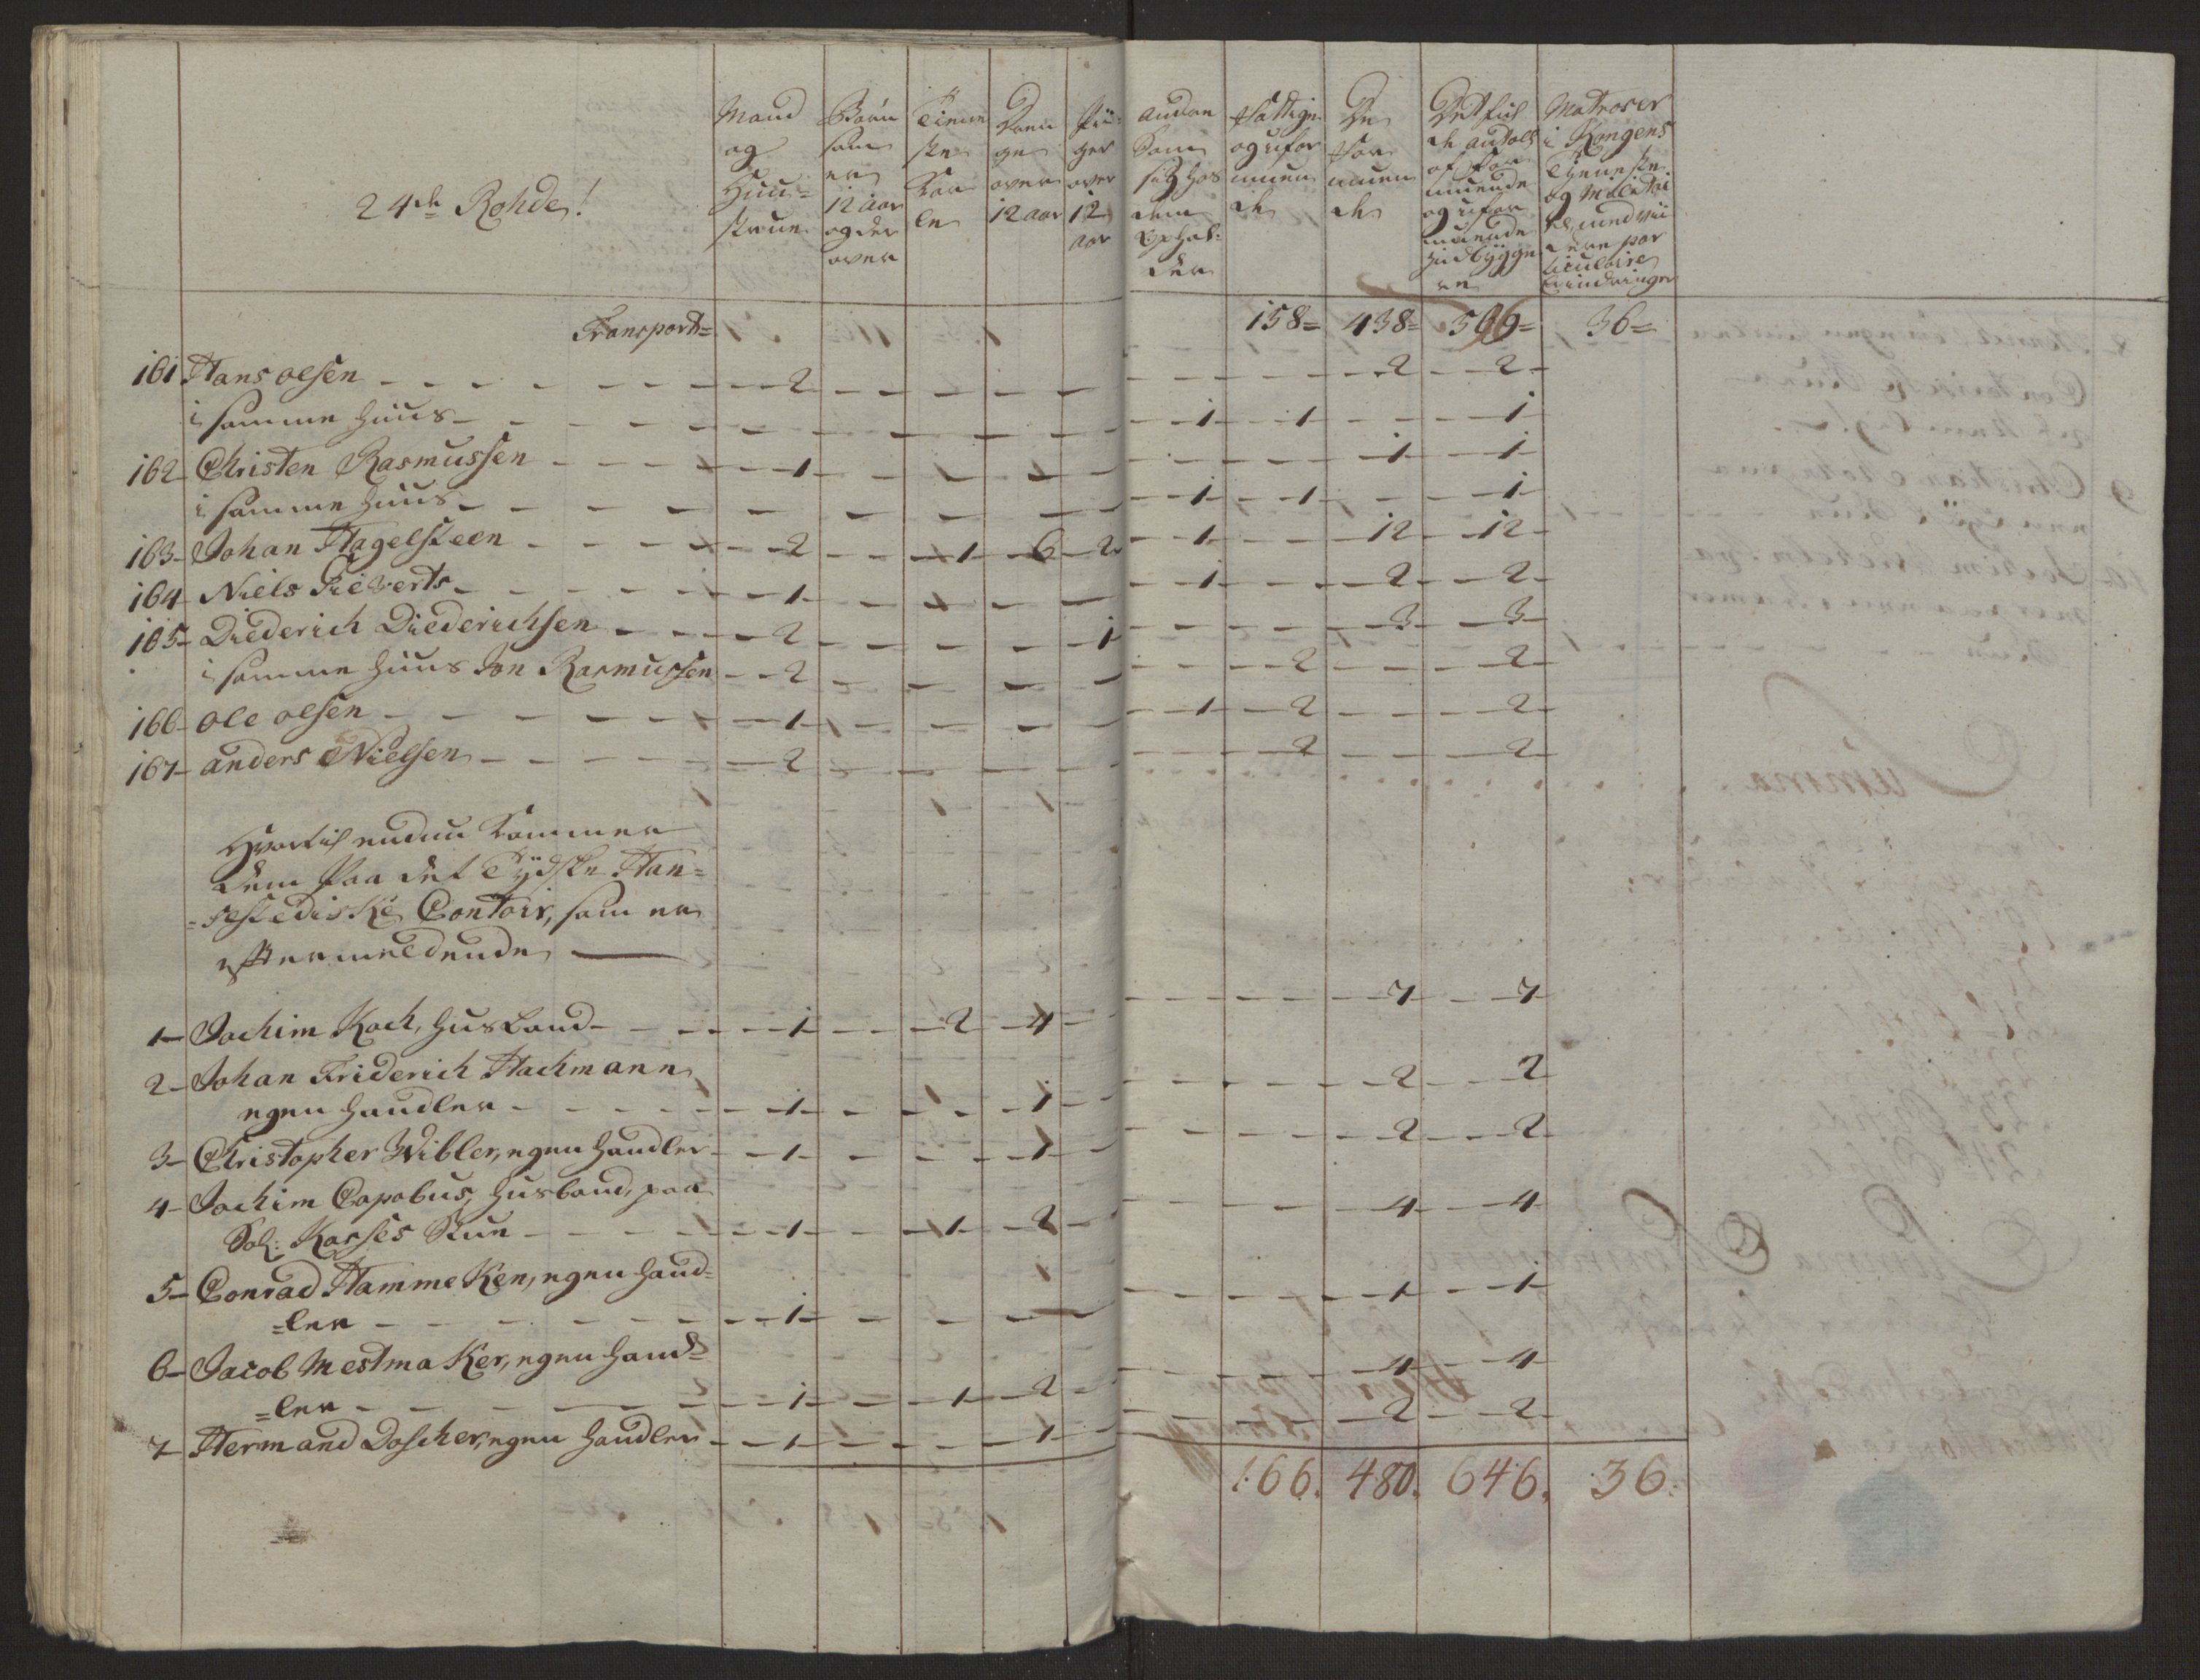 24de Rohde!
Mand og Huu= strue
Børn som er 12 aar og der over
Tienneste Kaarle
Drenge over 12 aar
Piiger over 12 aar
andre Som sig hos dem Ophol= der
Fattige og uformuende
De Formuende
Det fulde antall af Formuende og uformuende Indbyggere
Matroser i Kongens Tienneste
Transport= 158= 438= 596= 36=
161 Hans olsen 2 2 2
i samme Huus 1 1 1
162 Christen Rasmussen 1 1 1
i samme Huus 1 1 1
163 Johan Hagelsteen 2 1 6 2 1 12 12
164 Niels Sieverts 1 1 2 2
165 Diederich Diederichsen 2 1 3 3
i samme Huus Jon Rasmussen 2 2 2
166 Ole olsen 1 1 2 2
167 anders Nielsen 2 2 2
Hvortil endnu Kommer
dem paa det Tydske Han=
=sestediske Contoir, som er
efftermeldende
1 Jochim Koch, Husbond 1 2 4 7 7
2 Johan Friderich Hachmann
egen Handler 1 1 2 2
3 Christopher Wibler, egen Handler 1 1 2 2
4 Jochim Copobus, Husbond, paa
Sal: Karses Stue 1 1 2 4 4
5 Conrad Hammeken, egen Hand=
=ler 1 1 1
6 Jacob Mestmaker, egen Hand=
=ler 1 1 2 4 4
7 Hermand Doscher, egen Handler 1 1 2 2
166. 480. 646. 36.